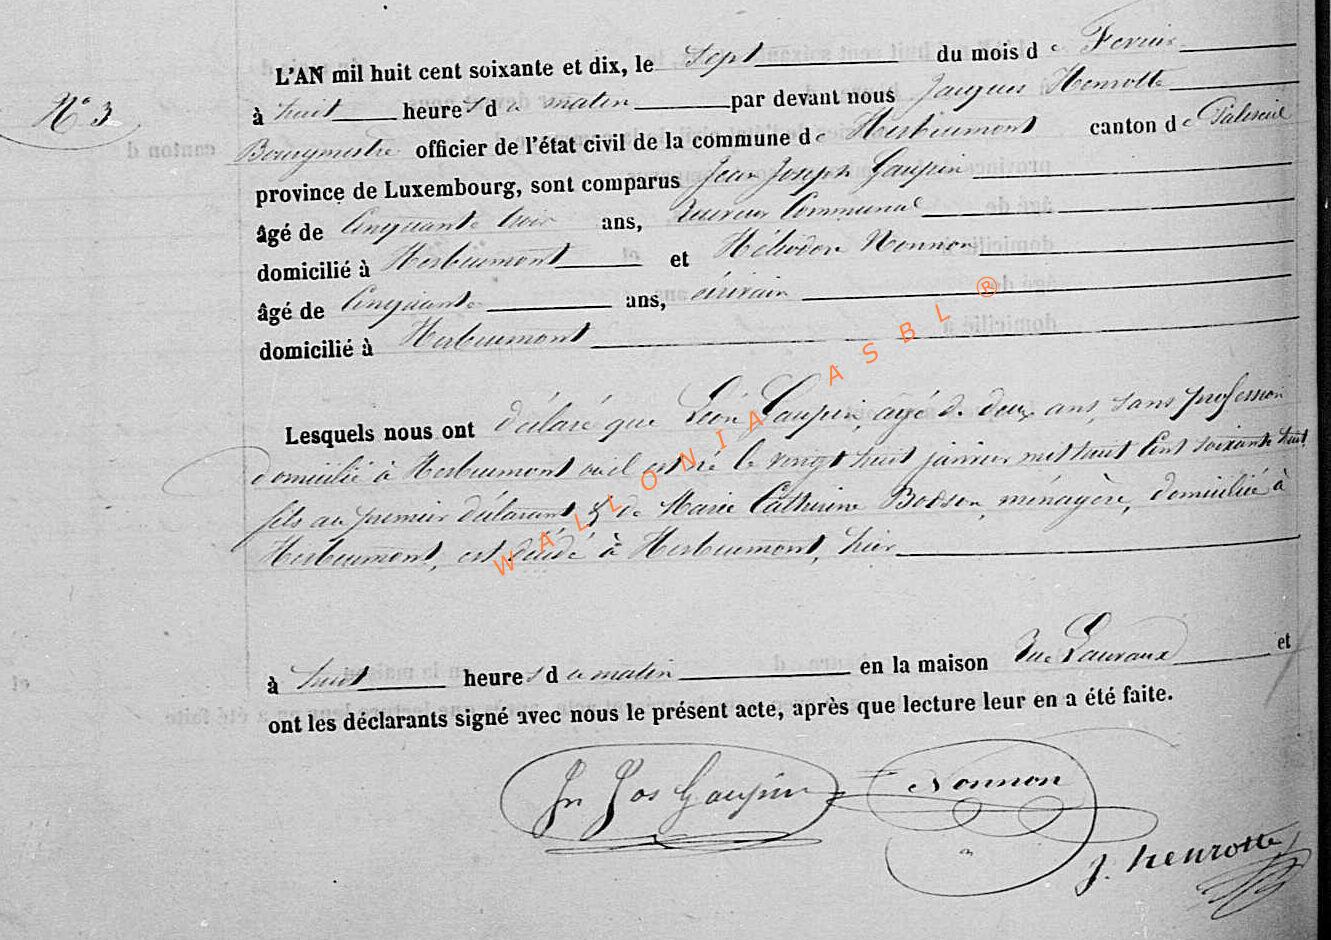 L'AN mil huit cent soixante et dix, le sept du mois de Fevrier
N° 3
à huit heures du matin par devant nous Jacques Henrotte
Bourgmestre officier de l'état civil de la commune de Herbeumont canton de Paliseul
province de Luxembourg, sont comparus Jean Joseph Gaupin
âgé de Cinquante trois ans, Receveur Communal
domicilié à Herbeumont et Héliodore Nonnon
âgé de Cinquante ans, écrivain
domicilié à Herbeumont
Lesquels nous ont déclaré que Léon Gaupin, agé de deux ans, sans profession
domicilié à Herbeumont où il est né le vingt huit janvier mil huit Cent soixante huit
fils au premier déclarant & de Marie Catherine Bodson, ménagère, domiciliée à
Herbeumont, est décédé à Herbeumont, hier
à huit heures du matin en la maison rue Lauvaux et
ont les déclarants signé avec nous le présent acte, après que lecture leur en a été faite.
Jn Jos Gaupin Nonnon
J. henrotte
WALLONIA ASBL ®